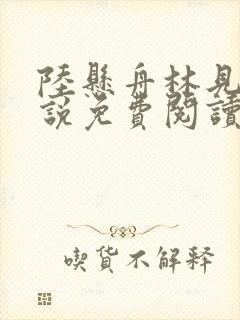 陸懸舟林見
說免費閱讀
喫貨不解釋